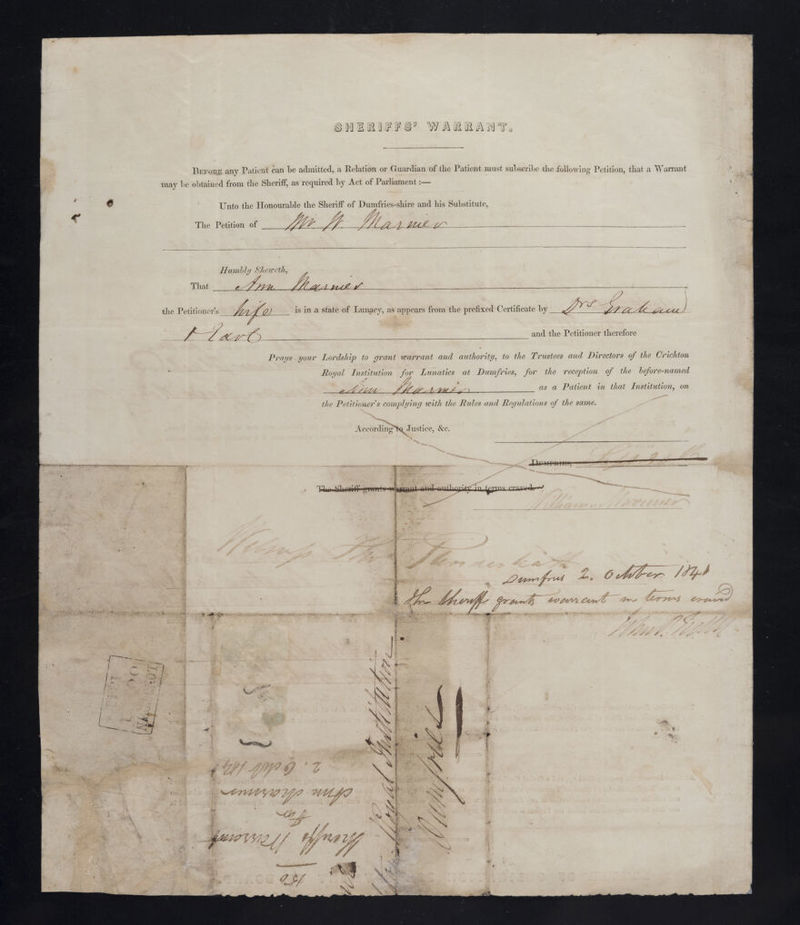 SHERIFFS' WARRANT.
BEFORE any Patient can be admitted, a Relation or Guardian of the Patient must subscribe the following Petition, that a Warrant
may be obtained from the Sheriff, as required by Act of Parliament :—
Unto the Honourable the Sheriff of Dumfries-shire and his Substitute,
The Petition of Mr. W. Marnier
Humbly Sheweth,
That Ann Marnier
the Petitioner's Wife is in a state of Lunacy, as appears from the prefixed Certificate by Drs Graham
and the Petitioner therefore
Prays your Lordship to grant warrant and authority, to the Trustees and Directors of the Crichton
Royal Institution for Lunatics at Dumfries, for the reception of the before-named
Ann Marnier as a Patient in that Institution, on
the Petitioner's complying with the Rules and Regulations of the same.
According to Justice, &c.
DUMFRIES,
The Sheriff grants warrant and authority in terms craved.
William Marnier
Dumfries 2. October 184
The Sheriff grants warrant in terms craved
Royal Institution
Dumfries
OC
156
Sheriffs Warrant
for
Ann Marnier
2. Octr 184